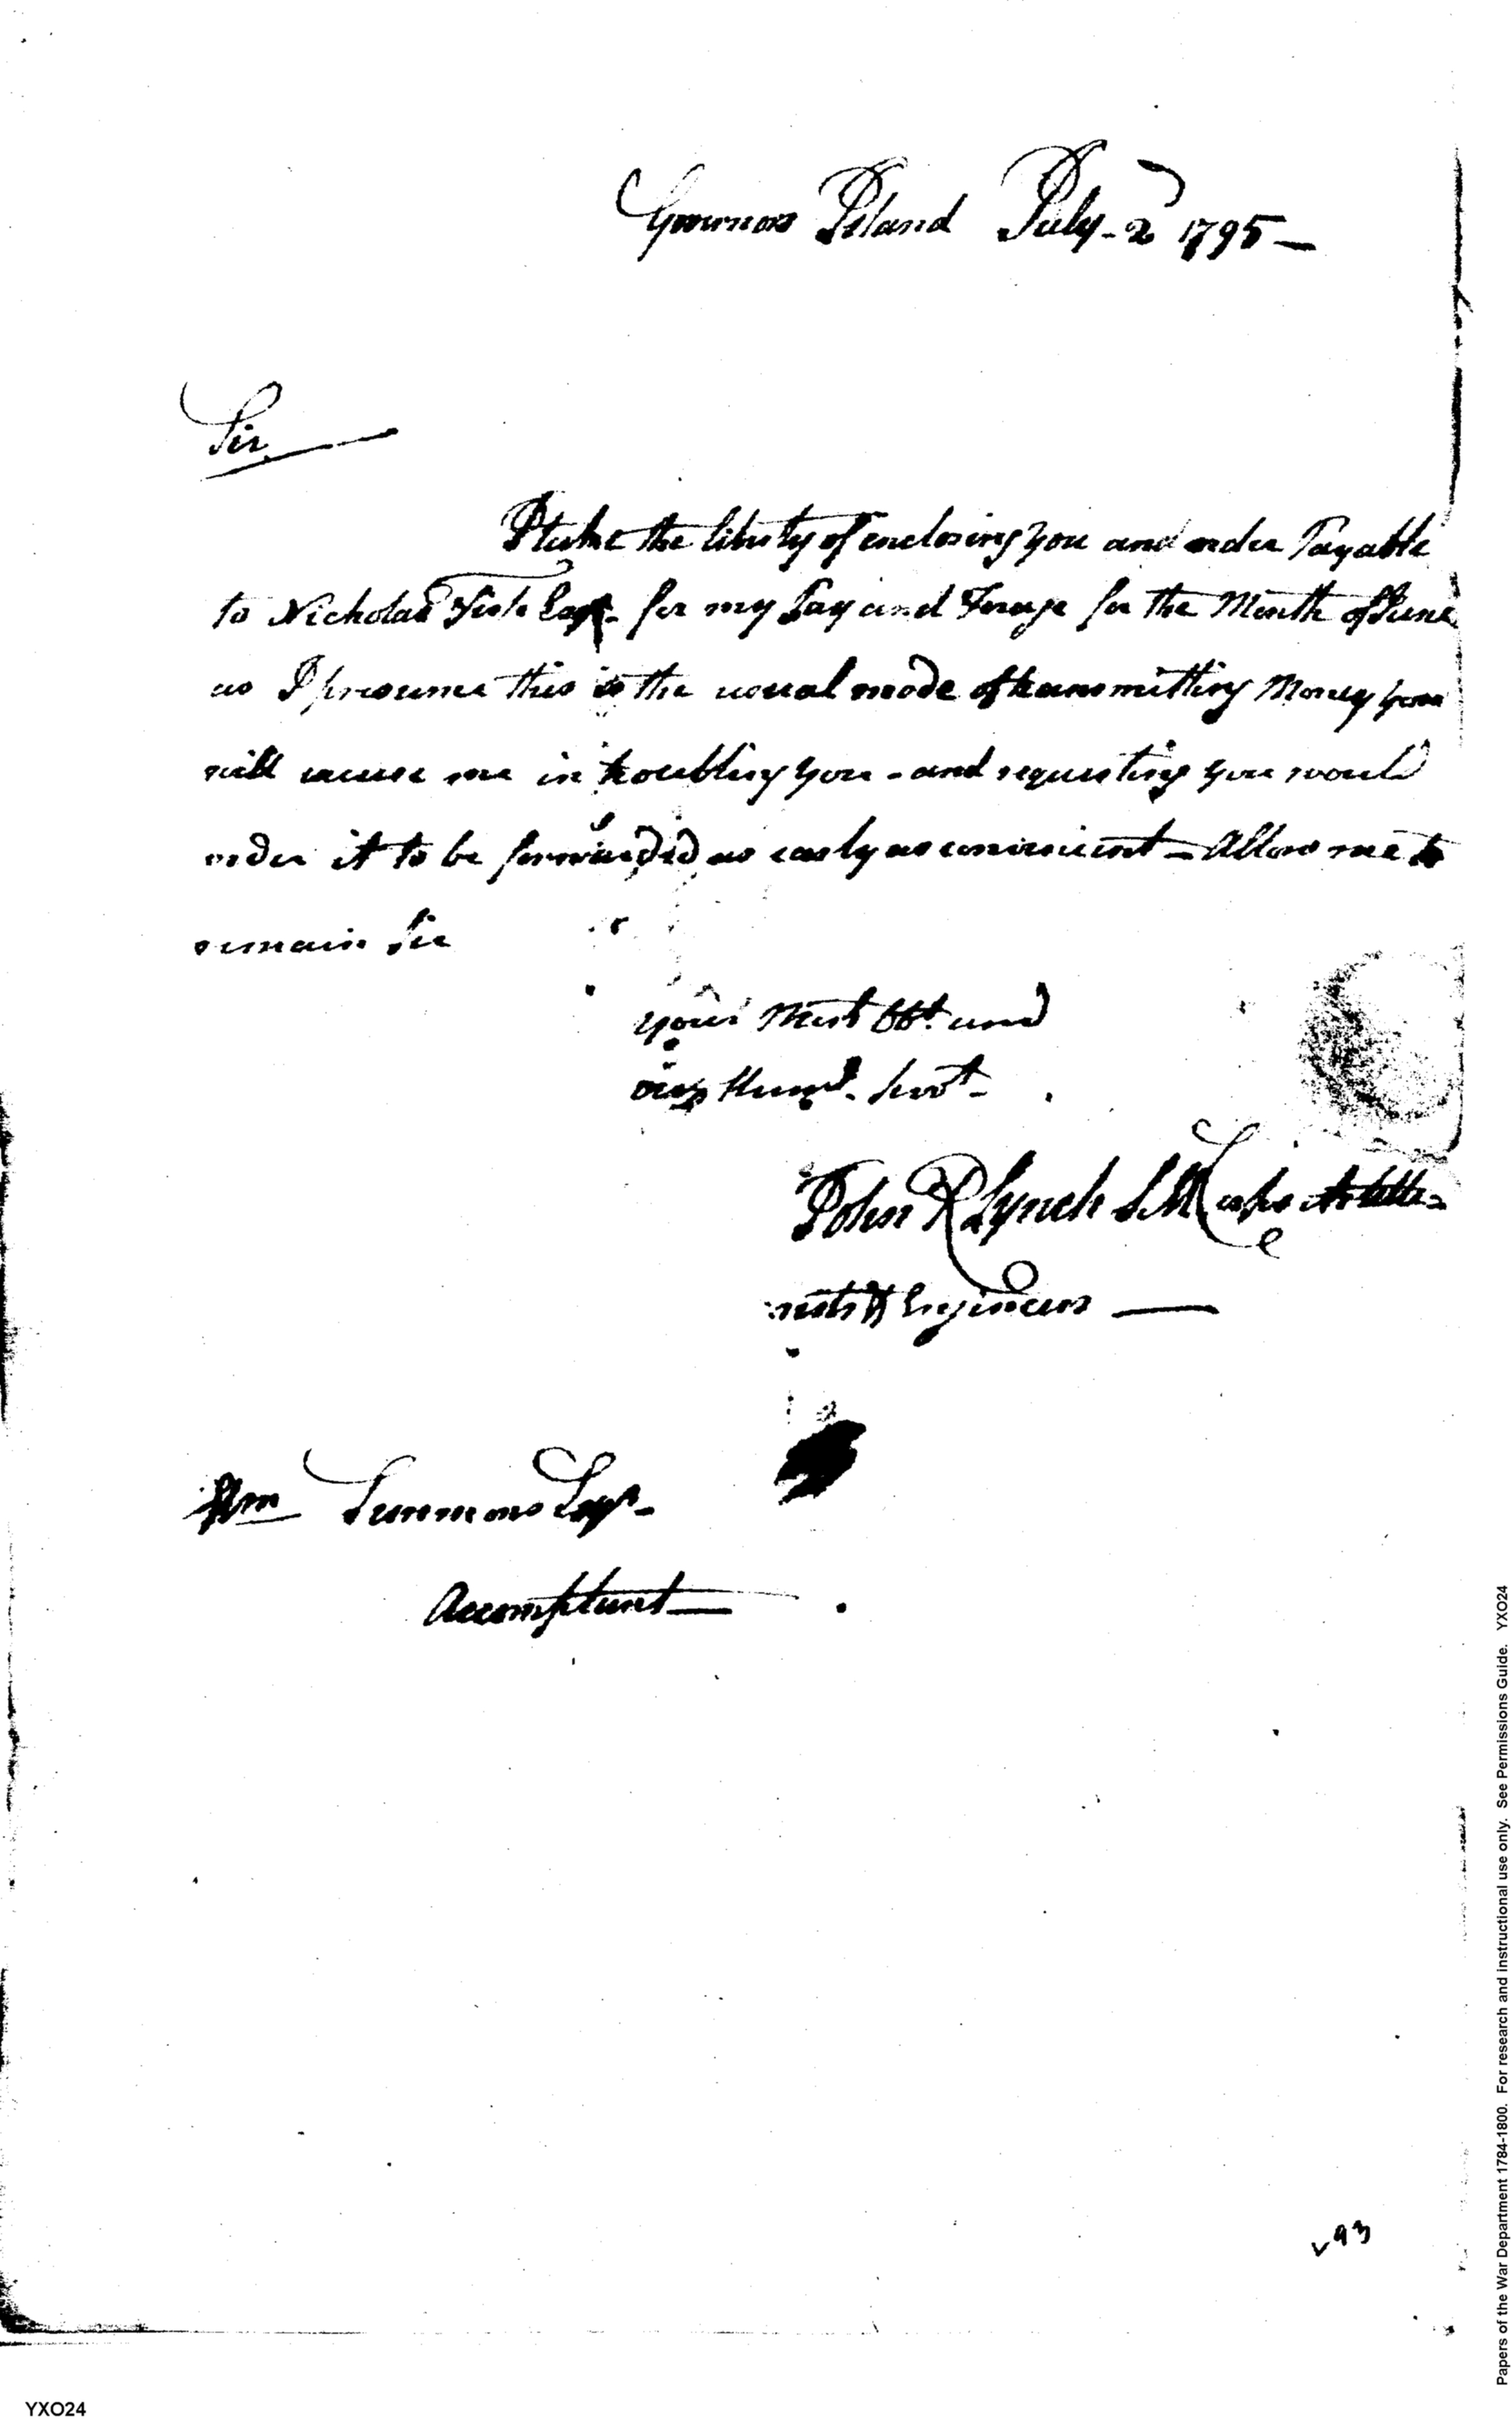 Governors Island July 2d 1795 –
Sir
I take the liberty of enclosing you and order Payable
to Nicholas Fish Esqr. for my Pay and Forage for the Month of June
as I presume this is the usual mode of transmitting Money you
will excuse me in troubling you - and requesting you would
order it to be forwarded as early as convenient – Allow me to
remain Sir
your Most Obt. and
very Huml. Servt -
John R Lynch S.M Corps Artille=
rists & Engineers —
Wm Simmons Esqr.
Accomptant —
v93
YXO24
Papers of the War Department 1784-1800. For research and instructional use only. See Permissions Guide. YXO24